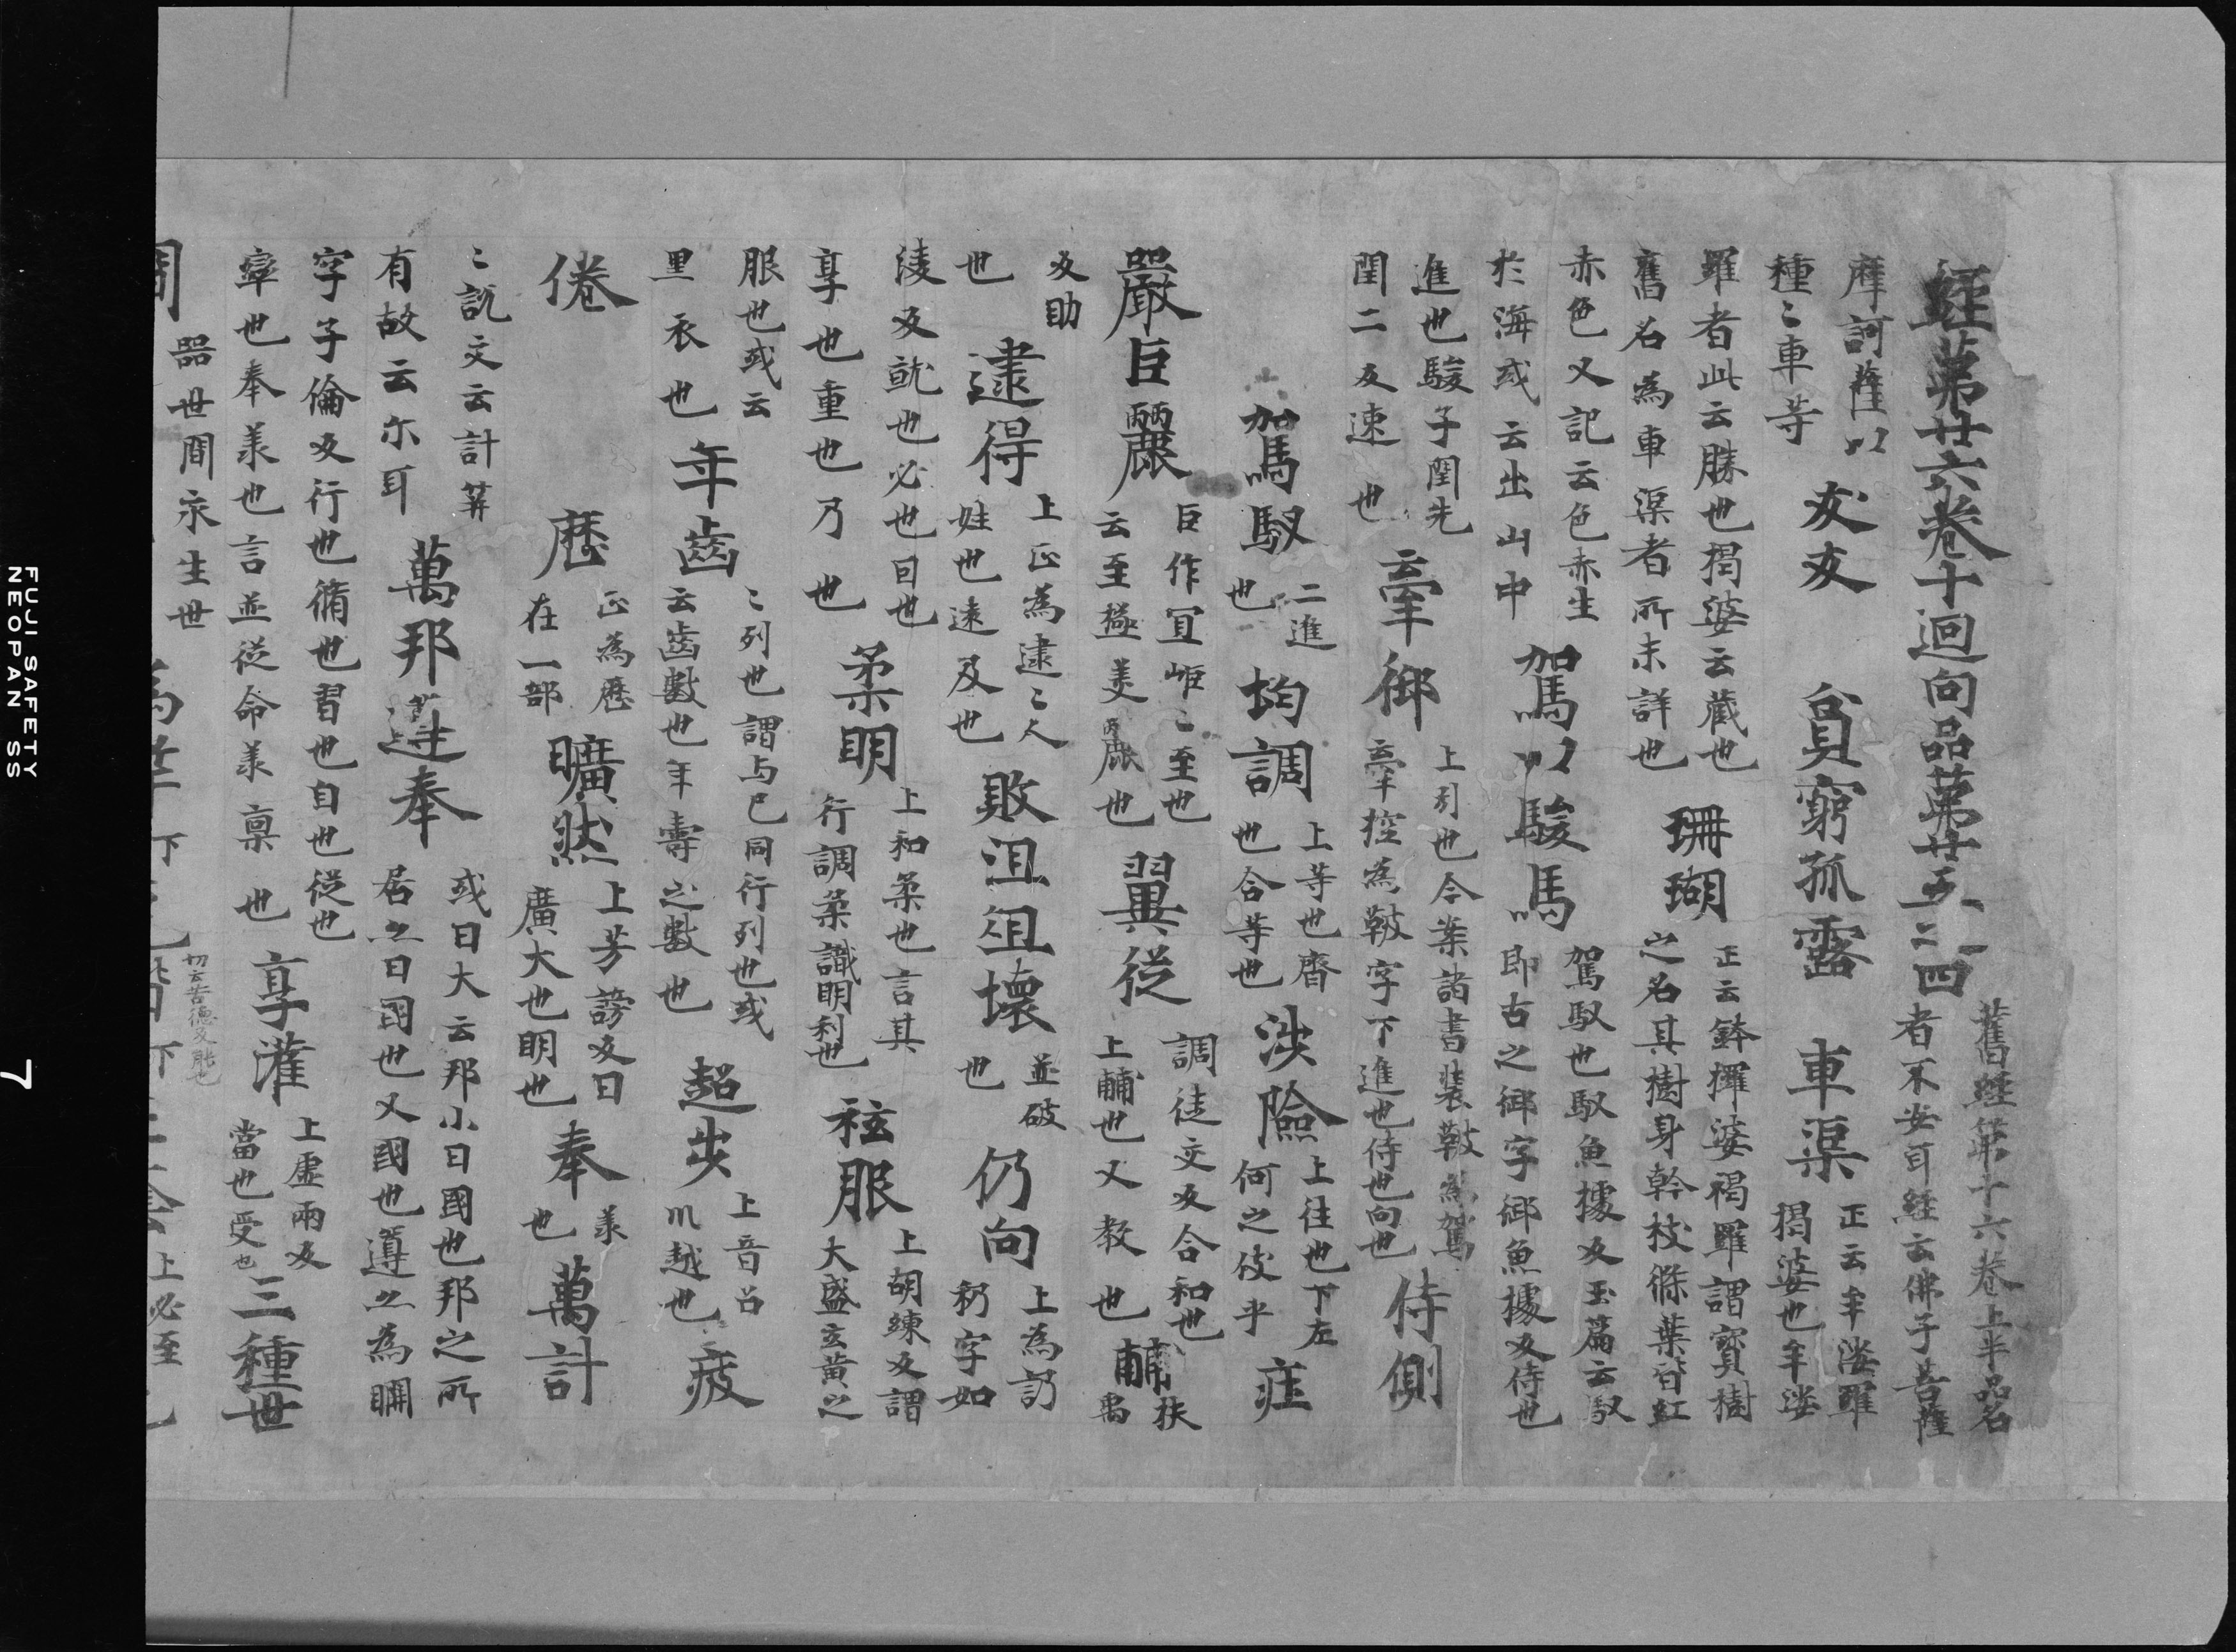 經第廿六卷十迴向品第廿五之四
舊經第十六卷上半品名
者不安耳経云佛子菩薩
摩訶薩以
種〻車等
犮犮 貟窮孤露 車渠
正云牟渁羅
揭婆也牟渁
羅者此云勝也揭婆云蔵也
舊名為車渠者所未詳也
珊瑚
正云鉢攞婆褐羅謂寳樹
之名其樹身幹枝條葉皆紅
赤色又記云色赤生
於海或云出山中
駕以駿馬
駕馭也馭魚據反玉篇云馭
即古之御字御魚據反侍也
進也駿子閏先
閏二反速也
牽御
上引也今案諸書装鞁為駕
牽控為鞁字下進也侍也向也
侍側
駕馭
二進
也
均調
上等也齊
也合等也
涉險
上往也下左
何之伇乎
症
嚴巨麗
巨作冝岠〻至也
云至極美麗也
翼從
調徒交反合和也
上輔也又教也
輔
扶
禹
反助
也
逮得
上正為逮〻人
娃也遠及也
敗沮俎壊
並破
也
仍向
上為訒
礽字如
淩反就也必也曰也
享也重也乃也
柔明
上和柔也言其
行調柔識明利也
袨服
上胡練反謂
大盛玄黄之
服也或云
里衣也
年齒
〻列也謂与己同行列也或
云齒數也年壽之數也
超步
上音召
爪越也
疲
倦 歴
正為歷
在一部
曠然
上芳謗反曰
廣大也明也
奉
羕
也
萬計
〻説文云計筭
有故云尒耳
萬邦遵奉
或曰大云邦小曰國也邦之所
居亠曰國也又國也遵亠為
字子倫反行也脩也習也自也從也
率也奉羕也言並從命羕稟也
享灌
上虛兩反
當也受也
三種世
間
器世間衆生世